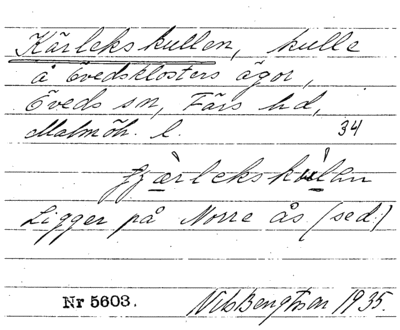 Kärlekskullen, kulle
å Övedsklosters ägor,
Öveds sn, Färs hd,
Malmöh. l.
34
Ligger på Norre ås (sed.)
Nr 5603. Nils Bengtsson 1935.